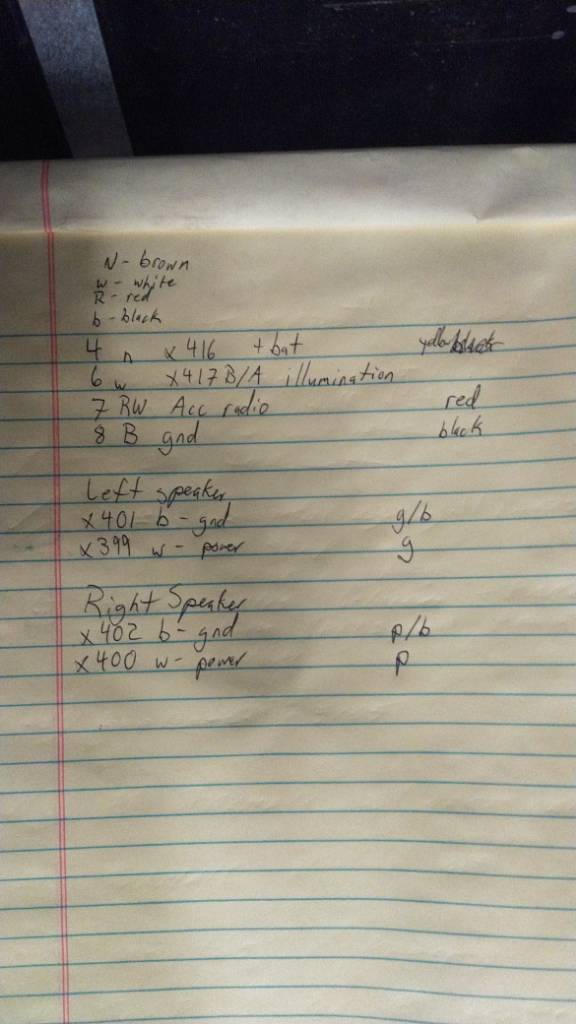 N - brown
w - white
R - red
b - black
4 n x416 + bat yellow
6 w x417 B/A illumination
7 RW Acc radio red
8 B gnd black
Left speaker
x401 b - gnd g/b
x399 w - power g
Right Speaker
x402 b - gnd p/b
x400 w - power p